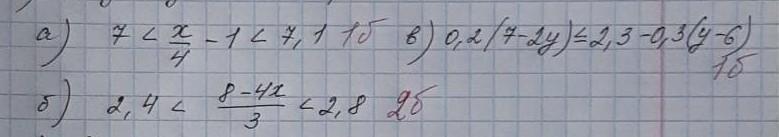 а) 7 < x/4 - 1 < 7,1 1б в) 0,2(7-2y) ≤ 2,3-0,3(y-6)
1б
б) 2,4 < (8-4x)/3 < 2,8 2б